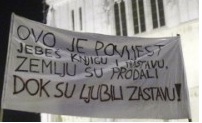 OVO JE POVIJEST
JEBEŠ KNJIGU I NASTAVU,
ZEMLJU SU PRODALI
DOK SU LJUBILI ZASTAVU!